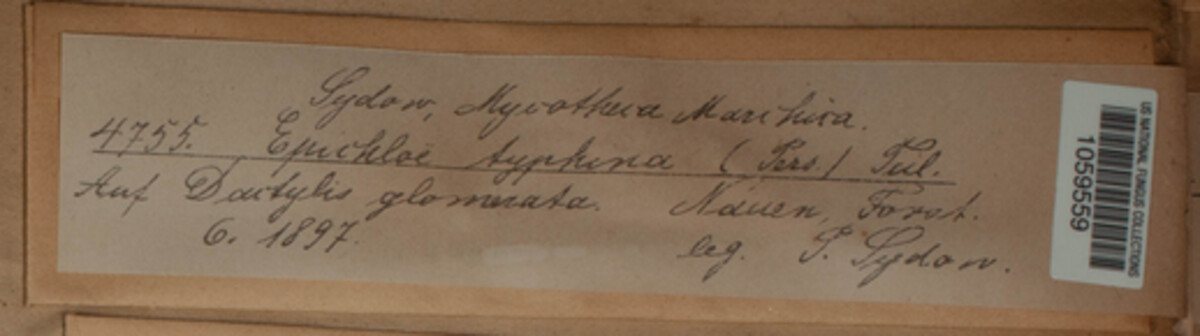 Sydow, Mycotheca Marchica.
4755. Epichloë typhina (Pers.) Tul.
Auf Dactylis glomerata. Nauen, Forst.
6. 1897. leg. P. Sydow.
US NATIONAL FUNGUS COLLECTIONS
1059559